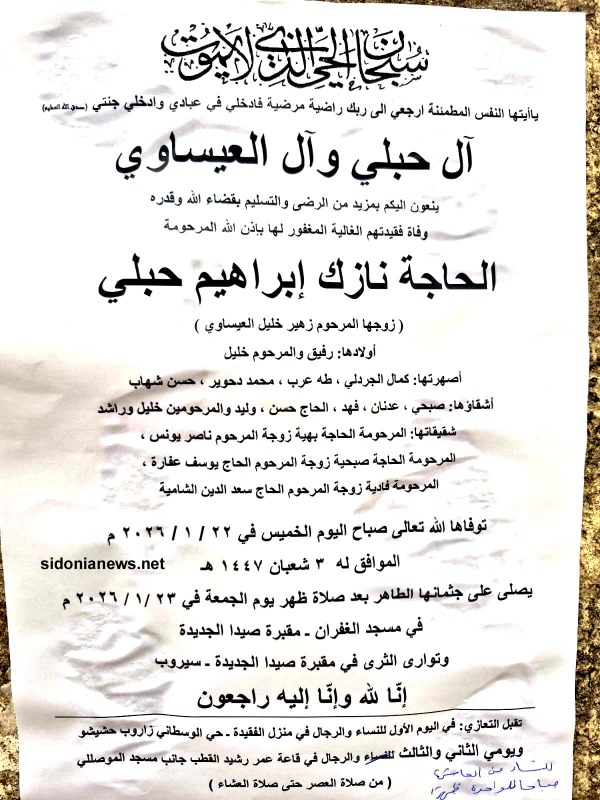 سبحان الحي الذي لا يموت
ياأيتها النفس المطمئنة ارجعي الى ربك راضية مرضية فادخلي في عبادي وادخلي جنتي (صدق الله العظيم)
آل حبلي وآل العيساوي
ينعون اليكم بمزيد من الرضى والتسليم بقضاء الله وقدره
وفاة فقيدتهم الغالية المغفور لها بإذن الله المرحومة
الحاجة نازك إبراهيم حبلي
( زوجها المرحوم زهير خليل العيساوي )
أولادها: رفيق والمرحوم خليل
أصهرتها: كمال الجردلي ، طه عرب ، محمد دحوير ، حسن شهاب
أشقاؤها: صبحي ، عدنان ، فهد ، الحاج حسن ، وليد والمرحومين خليل وراشد
شقيقاتها: المرحومة الحاجة بهية زوجة المرحوم ناصر يونس ،
المرحومة الحاجة صبحية زوجة المرحوم الحاج يوسف عفارة ،
المرحومة فادية زوجة المرحوم الحاج سعد الدين الشامية
توفاها الله تعالى صباح اليوم الخميس في ٢٢ / ١ / ٢٠٢٦ م
الموافق له ٣ شعبان ١٤٤٧ هـ
sidonianews.net
يصلى على جثمانها الطاهر بعد صلاة ظهر يوم الجمعة في ٢٣ /١ / ٢٠٢٦ م
في مسجد الغفران ـ مقبرة صيدا الجديدة
وتوارى الثرى في مقبرة صيدا الجديدة ـ سيروب
إنّا لله وإنّا إليه راجعون
تقبل التعازي: في اليوم الأول للنساء والرجال في منزل الفقيدة ـ حي الوسطاني زاروب حشيشو
ويومي الثاني والثالث للنساء والرجال في قاعة عمر رشيد القطب جانب مسجد الموصللي
( من صلاة العصر حتى صلاة العشاء )
للنساء من العاشرة
صباحا للواحدة ظهرا